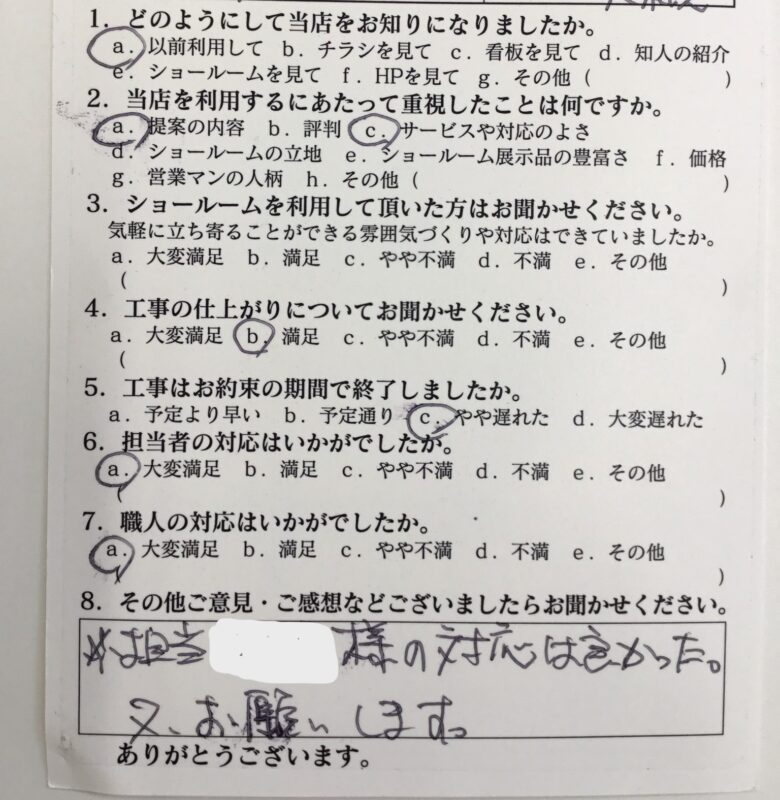 1．どのようにして当店をお知りになりましたか。
a．以前利用して b．チラシを見て c．看板を見て d．知人の紹介
e．ショールームを見て f．HPを見て g．その他（ ）
2．当店を利用するにあたって重視したことは何ですか。
a．提案の内容 b．評判 c．サービスや対応のよさ
d．ショールームの立地 e．ショールーム展示品の豊富さ f．価格
g．営業マンの人柄 h．その他（ ）
3．ショールームを利用して頂いた方はお聞かせください。
気軽に立ち寄ることができる雰囲気づくりや対応はできていましたか。
a．大変満足 b．満足 c．やや不満 d．不満 e．その他
（ ）
4．工事の仕上がりについてお聞かせください。
a．大変満足 b．満足 c．やや不満 d．不満 e．その他
（ ）
5．工事はお約束の期間で終了しましたか。
a．予定より早い b．予定通り c．やや遅れた d．大変遅れた
6．担当者の対応はいかがでしたか。
a．大変満足 b．満足 c．やや不満 d．不満 e．その他
（ ）
7．職人の対応はいかがでしたか。
a．大変満足 b．満足 c．やや不満 d．不満 e．その他
（ ）
8．その他ご意見・ご感想などございましたらお聞かせください。
担当 様の対応は良かった。
又、お願いします。
ありがとうございます。